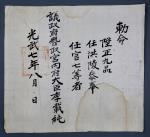 勅命
陞正九品
任洪陵参奉
任官七等者
議政府賛政宮内府大臣李載純
光武七年八月 日